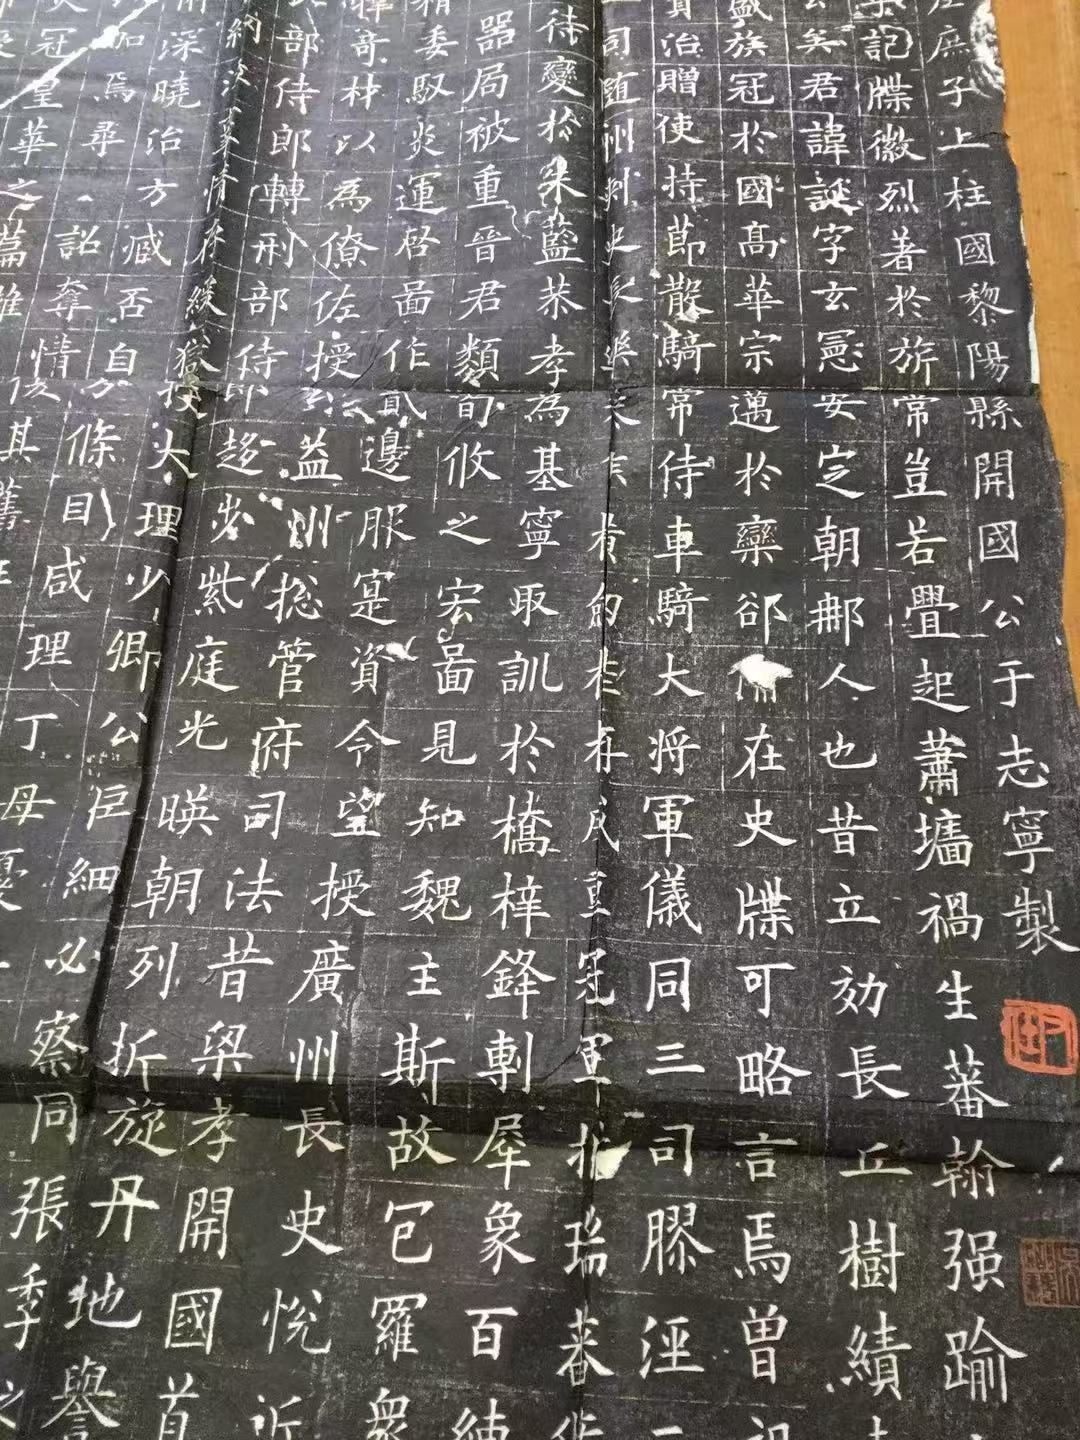 庶子上柱國黎陽縣開國公于志寧製
記牒徽烈著於旂常豈若疊起蕭墻禍生蕃翰强踰
矣君諱誕字玄憲安定朝那人也昔立効長丘樹績
盛族冠於國高華宗邁於欒郤在史牒可略言焉曾祖
治贈使持節散騎常侍車騎大將軍儀同三司膠涇二
司随州刺史長樂 重冠軍 瑞蕃
待變於朱藍恭孝為基寧取訓於橋梓鋒剸犀象百練
器局被重晉君類荀攸之宏啚見知魏主斯故包羅衆
精委馭炎運啓啚作貳邊服寔資令望授廣州長史悅近
哥材以為僚佐授公益州揔管府司法昔梁孝開國首
部侍郎轉刑部侍郎趍步紫庭光暎朝列折旋丹地譽
約法 情存緩獄授大理少卿公巨細必察同張季之
深曉治方臧否自分條目咸理丁母憂
焉尋詔奪情復其舊
冠皇華之篇雖